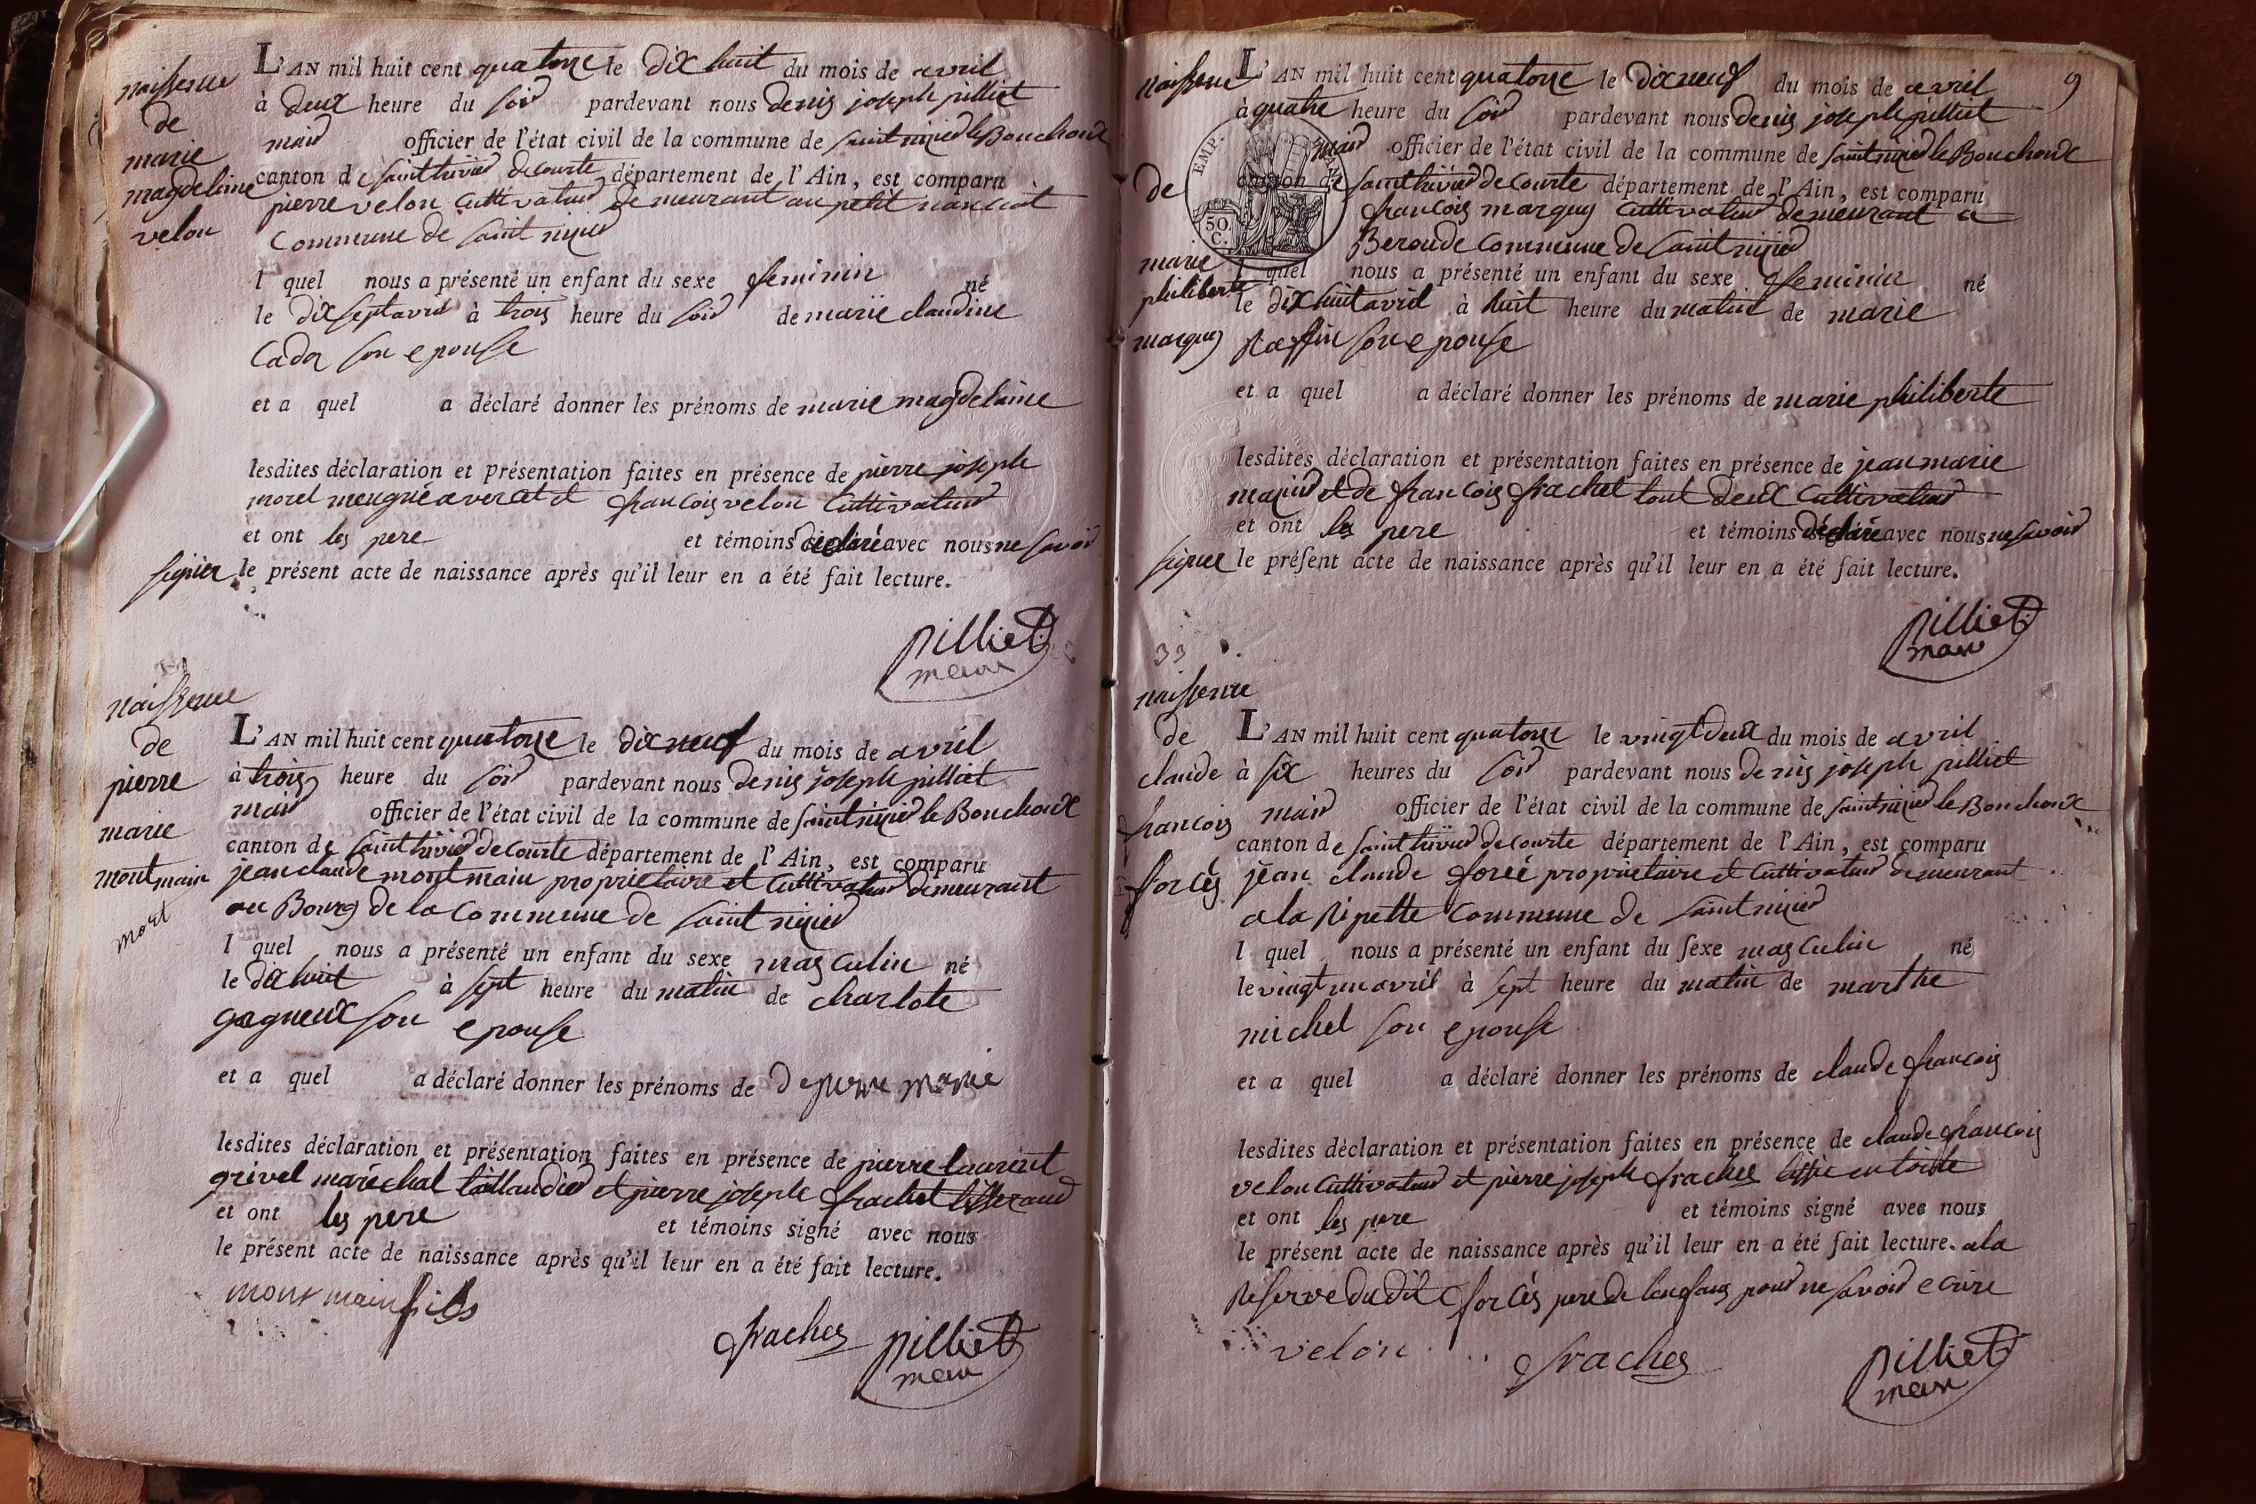 naissence
de
marie
magdelaine
velon
L'AN mil huit cent quatorze le dix huit du mois de avril
à deux heure du soir pardevant nous denis joseph pilliet
mair officier de l'état civil de la commune de saint nizier le Bouchoux
canton de saint trivier de courte département de l'Ain, est comparu
pierre velon cultivateur demeurant au petit nanciat
commune de saint nizier
l quel nous a présenté un enfant du sexe feminin né
le dix sept avril à trois heure du soir de marie claudine
Cador son epouse
et a quel a déclaré donner les prénoms de marie magdelaine
lesdites déclaration et présentation faites en présence de pierre joseph
morel françois velon cultivateur
et ont les pere et témoins déclaré avec nous ne savoir
signer le présent acte de naissance après qu'il leur en a été fait lecture.
pilliet
mair
naissence
de
pierre
marie
montmain
mort
L'AN mil huit cent quatorze le dix neuf du mois de avril
à trois heure du soir pardevant nous denis joseph pilliet
mair officier de l'état civil de la commune de saint nizier le Bouchoux
canton de saint trivier de courte département de l'Ain, est comparu
jean claude montmain propriètaire et cultivateur demeurant
au Bourg de la commune de saint nizier
l quel nous a présenté un enfant du sexe masculin né
le dix huit à sept heure du matin de charlote
gagneux son epouse
et a quel a déclaré donner les prénoms de de pierre marie
lesdites déclaration et présentation faites en présence de pierre laurent
grivel maréchal taillandier et pierre joseph frachet tisserand
et ont les pere et témoins signé avec nous
le présent acte de naissance après qu'il leur en a été fait lecture.
montmain fils
frachet pilliet
mair
9
naissence
de
marie
philiberte
marguy
EMP.
50.
C.
L'AN mil huit cent quatorze le dix neuf du mois de avril
à quatre heure du soir pardevant nous denis joseph pilliet
mair officier de l'état civil de la commune de saint nizier le Bouchoux
canton de saint trivier de courte département de l'Ain, est comparu
françois marguy cultivateur demeurant a
Beroude commune de saint nizier
l quel nous a présenté un enfant du sexe feminin né
le dix huit avril à huit heure du matin de marie
Raffin son epouse
et a quel a déclaré donner les prénoms de marie philiberte
lesdites déclaration et présentation faites en présence de jean marie
mazuir et de françois frachet tout deux cultivateur
et ont les pere et témoins déclaré avec nous ne savoir
signer le présent acte de naissance après qu'il leur en a été fait lecture.
pilliet
mair
33
naissence
de
claude
françois
forcés
L'AN mil huit cent quatorze le vingt deux du mois de avril
à six heures du soir pardevant nous denis joseph pilliet
mair officier de l'état civil de la commune de saint nizier le Bouchoux
canton de saint trivier de courte département de l'Ain, est comparu
jean claude forcé propriètaire et cultivateur demeurant
a la Ripette commune de saint nizier
l quel nous a présenté un enfant du sexe masculin né
le vingt un avril à sept heure du matin de marthe
michel son epouse
et a quel a déclaré donner les prénoms de claude françois
lesdites déclaration et présentation faites en présence de claude françois
velon cultivateur et pierre joseph frachet en toille
et ont les pere et témoins signé avec nous
le présent acte de naissance après qu'il leur en a été fait lecture. a la
Reserve du dit forcés pere de l'enfans pour ne savoir ecrire
velon frachet pilliet
mair